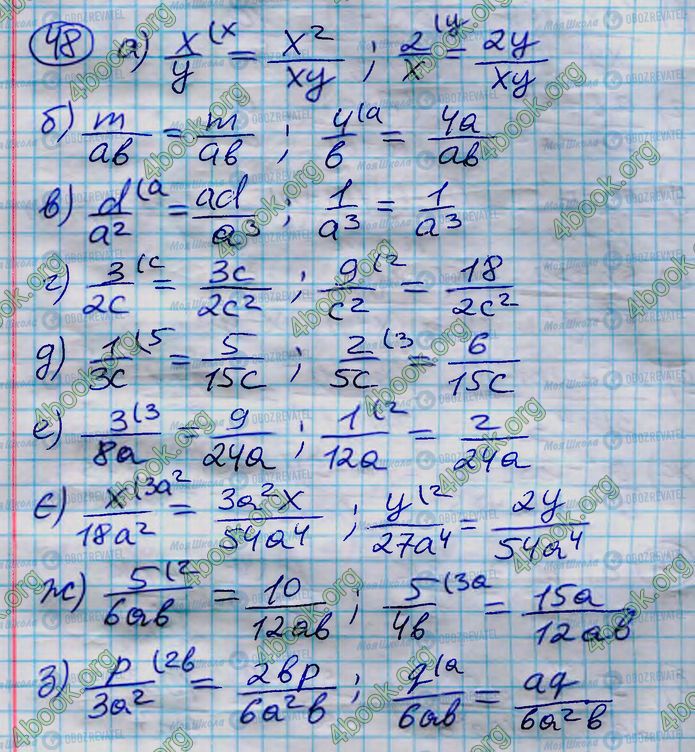 48 а) x/y (x = x²/xy ; 2/x (y = 2y/xy
б) m/ab = m/ab ; 4/b (a = 4a/ab
в) d/a² (a = ad/a³ ; 1/a³ = 1/a³
г) 3/2c (c = 3c/2c² ; 9/c² (2 = 18/2c²
д) 1/3c (5 = 5/15c ; 2/5c (3 = 6/15c
е) 3/8a (3 = 9/24a ; 1/12a (2 = 2/24a
є) x/18a² (3a² = 3a²x/54a⁴ ; y/27a⁴ (2 = 2y/54a⁴
ж) 5/6ab (2 = 10/12ab ; 5/4b (3a = 15a/12ab
з) p/3a² (2b = 2bp/6a²b ; q/6ab (a = aq/6a²b
4book.org
Моя Школа
OBOZREVATEL